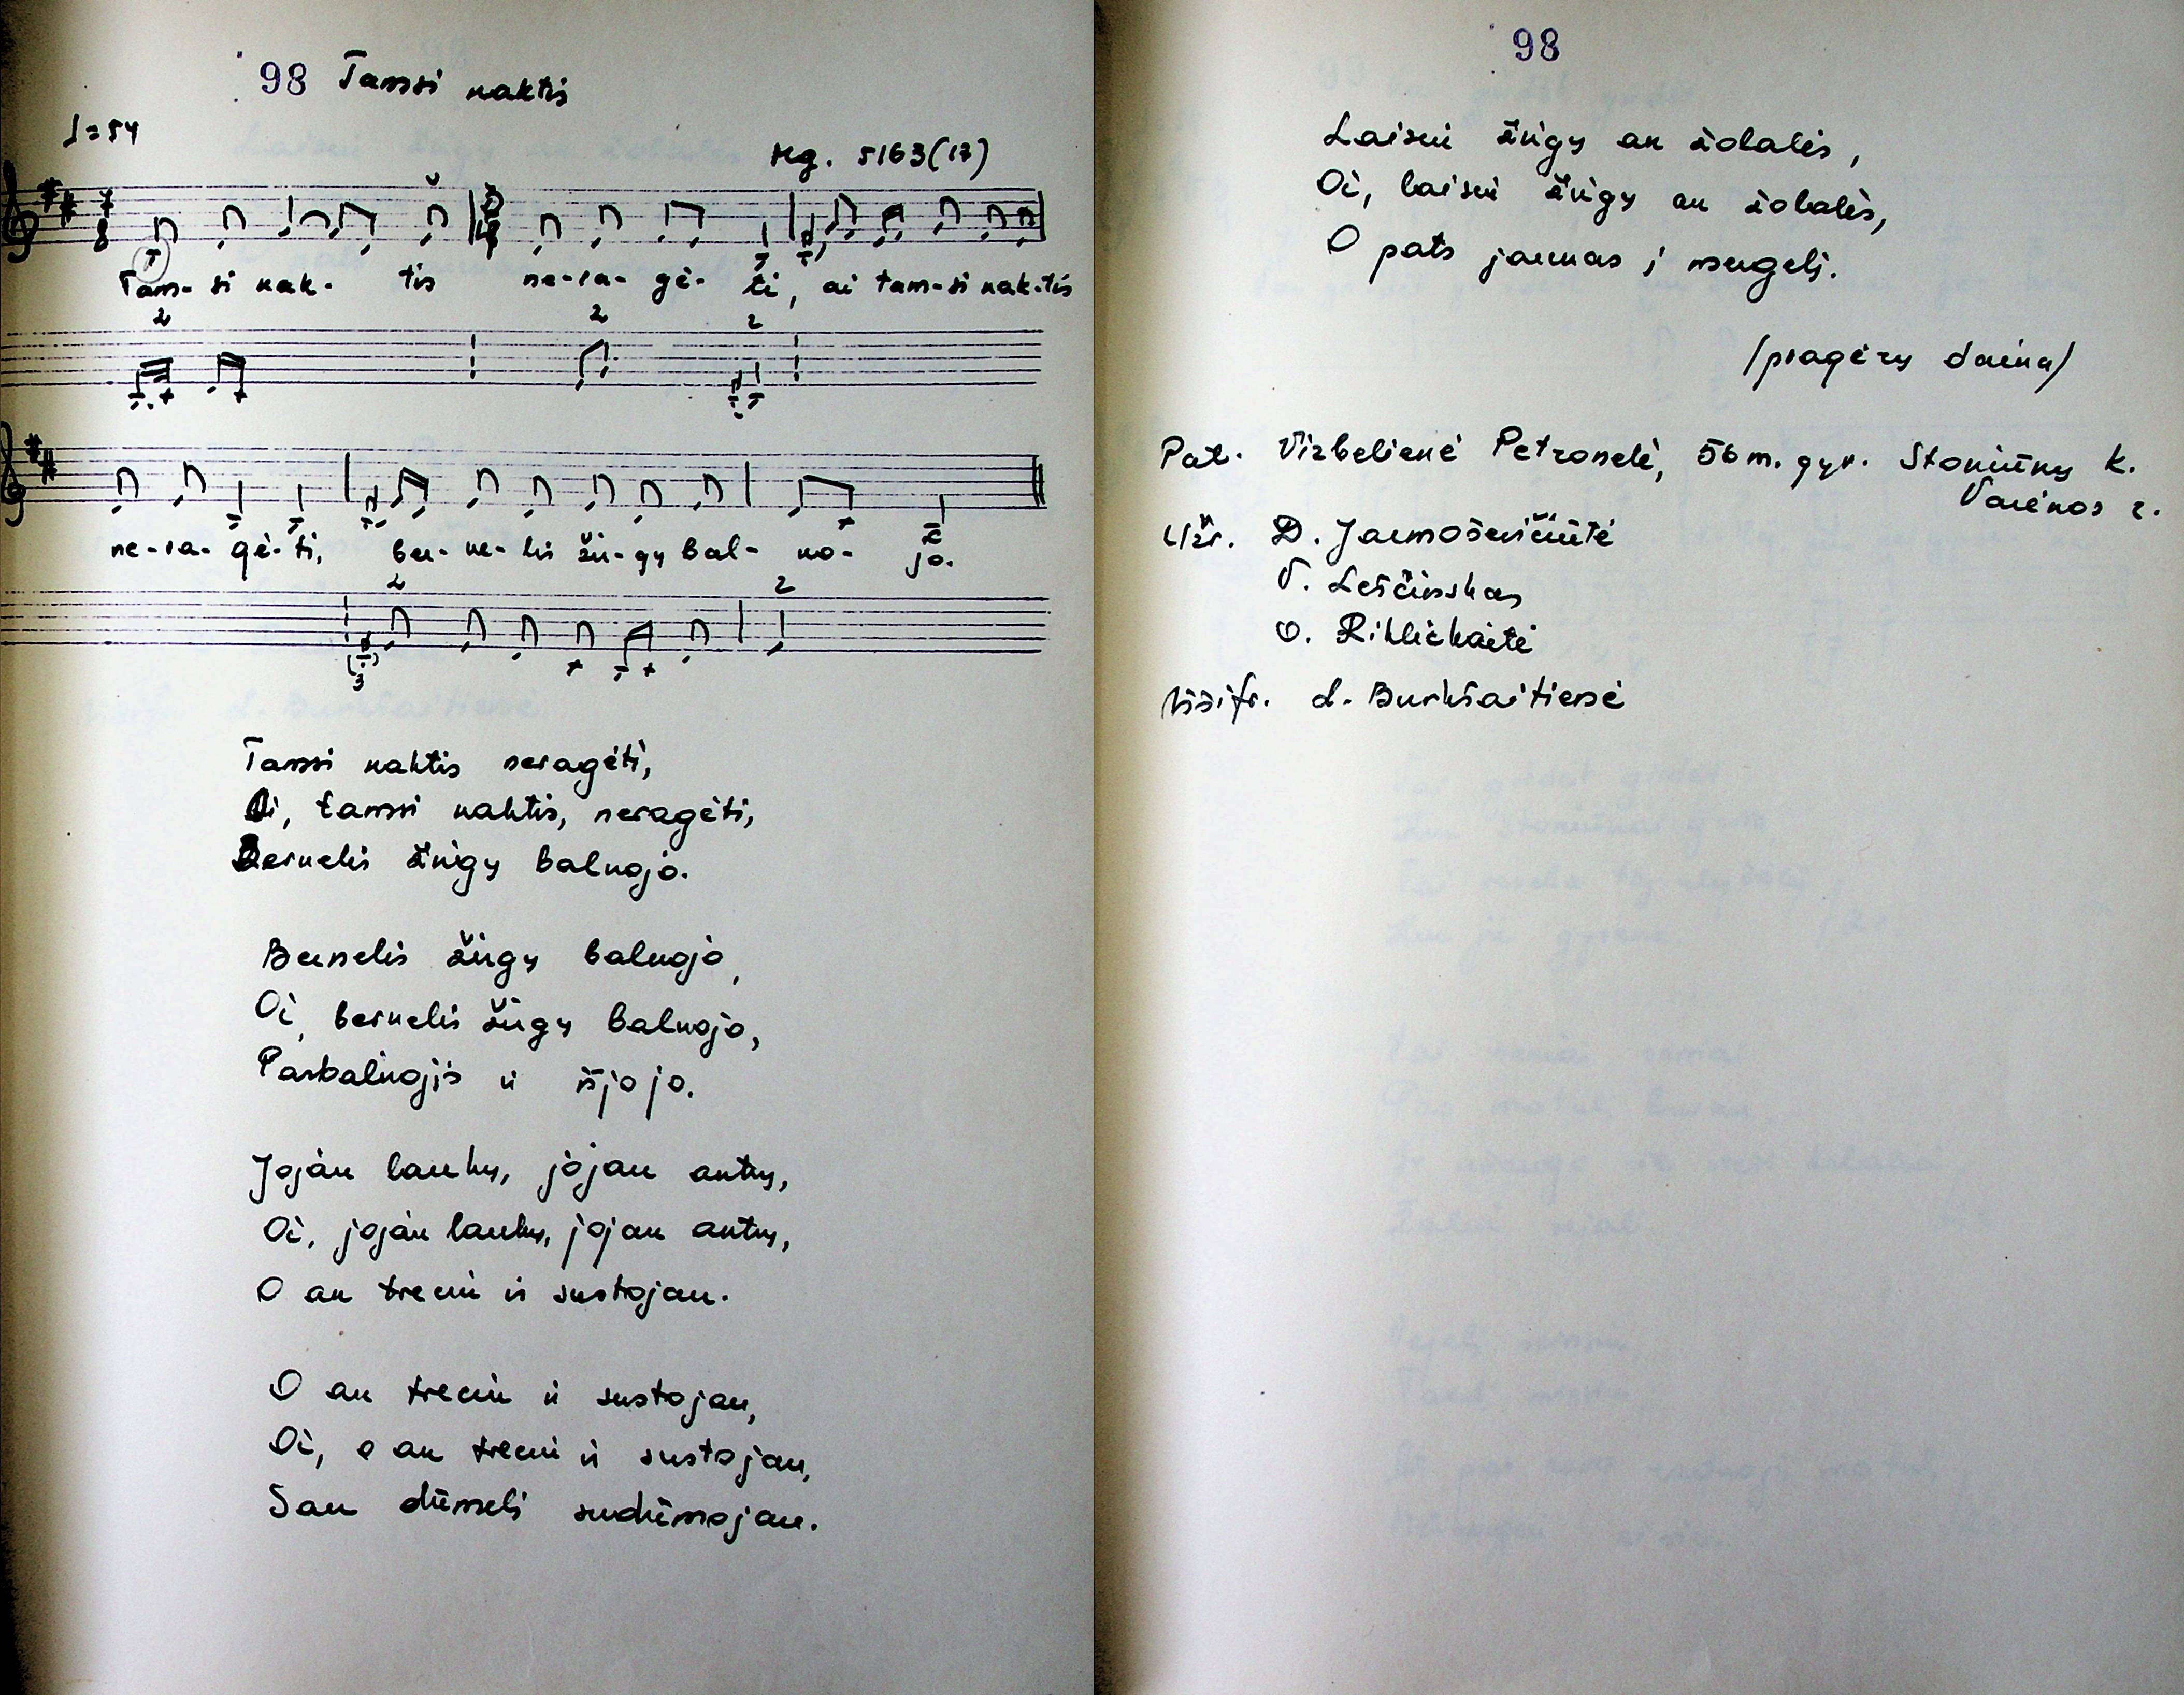 98 Tamsi naktis
♩=54
Mg. 5163(17)
Tam- si nak- tis ne-ra- gė- ti, ai tam-si nak-tis
2 2 2
ne-ra- gė- ti, ber- ne- lis žir- gų bal- no- jo.
2 2
3
Tamsi naktis neragėti,
Oi, tamsi naktis, neragėti,
Bernelis žirgų balnojo.
Bernelis žirgų balnojo,
Oi, bernelis žirgų balnojo,
Pasbalnojįs ir išjojo.
Jojàu laukų, jojau antrų,
Oi, jojàu laukų, jojau antrų,
O an treciu ir sustojau.
O an treciu ir sustojau,
Oi, o an treciu ir sustojau,
Sau dūmelį sudūmojau.
98
Laisiu žirgų an žolalės,
Oi, laisiu žirgų an žolalės,
O pats jaunas į mergelį.
/piagėrų daina/
Pat. Virbelienė Petronelė, 56 m. gyv. Stoniūnų k.
Varėnos r.
Užr. D. Jarmoševičiūtė
V. Leščinskas
O. Rikličkaitė
Iššifr. L. Burkšaitienė